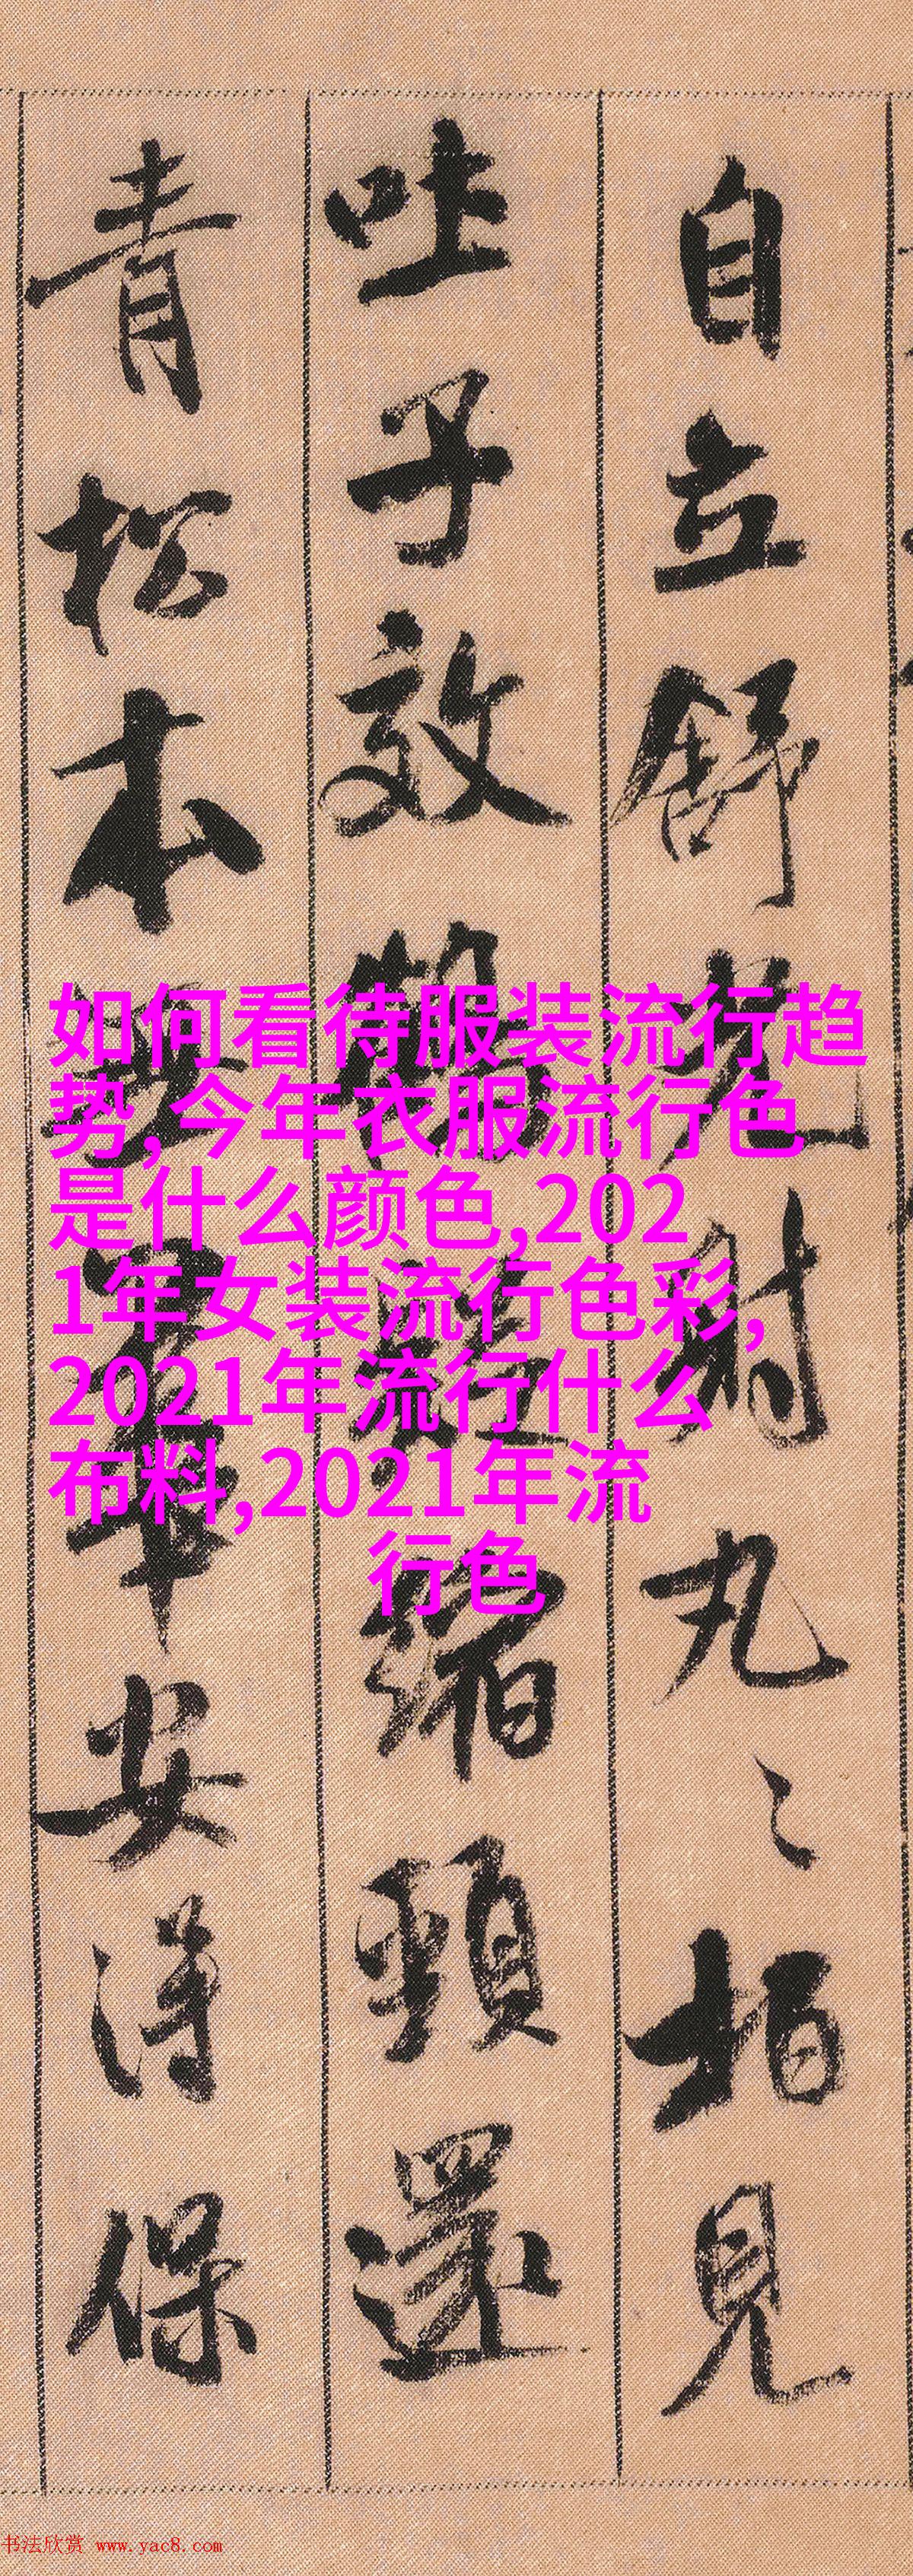 自立舒光射丸〻柏見
吐子效鶴疑縮頸還
青松本無華安得保
如何看待服装流行趋
势,今年衣服流行色
是什么颜色,202
1年女装流行色彩,
2021年流行什么
布料,2021年流
行色
书法欣赏 www.yac8.com